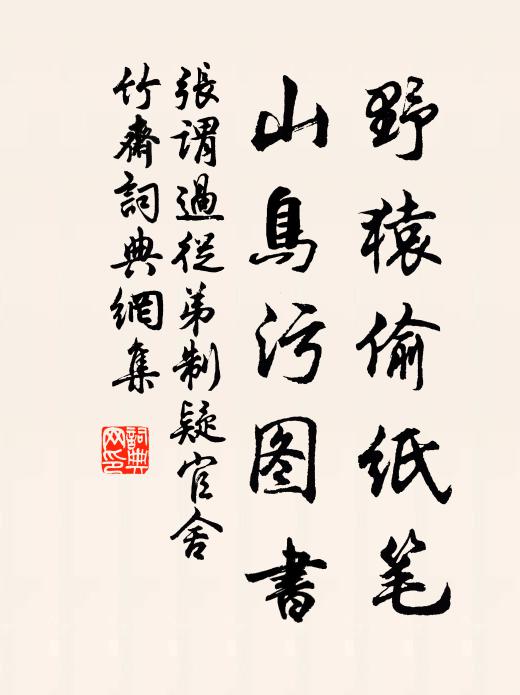 野猿偷纸笔
山鳥污图書
張謂過從弟制疑官舍
竹齋詞典網集
詞典
网印